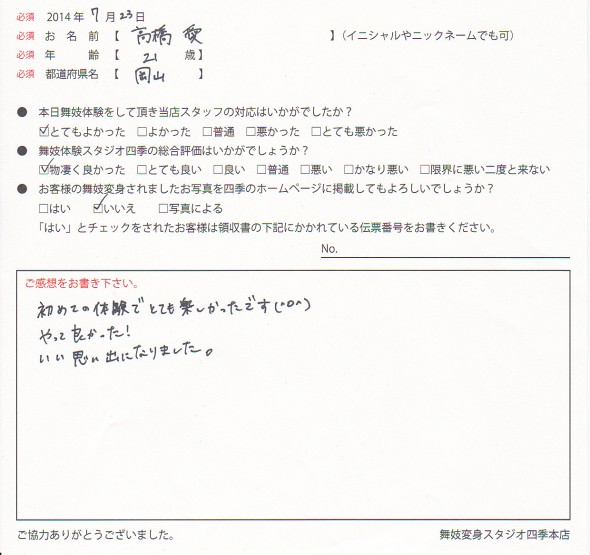 必須 2014年 7月 23日
必須 お 名 前 【 高橋 愛 】(イニシャルやニックネームでも可)
必須 年 齢 【 21 歳】
必須 都道府県名 【 岡山 】
● 本日舞妓体験をして頂き当店スタッフの対応はいかがでしたか?
☑とてもよかった □よかった □普通 □悪かった □とても悪かった
● 舞妓体験スタジオ四季の総合評価はいかがでしょうか?
☑物凄く良かった □とても良い □良い □普通 □悪い □かなり悪い □限界に悪い二度と来ない
● お客様の舞妓変身されましたお写真を四季のホームページに掲載してもよろしいでしょうか?
□はい ☑いいえ □写真による
「はい」とチェックをされたお客様は領収書の下記にかかれている伝票番号をお書きください。
No.
ご感想をお書き下さい。
初めての体験でとても楽しかったです(^o^)
やって良かった!
いい思い出になりました。
ご協力ありがとうございました。 舞妓変身スタジオ四季本店